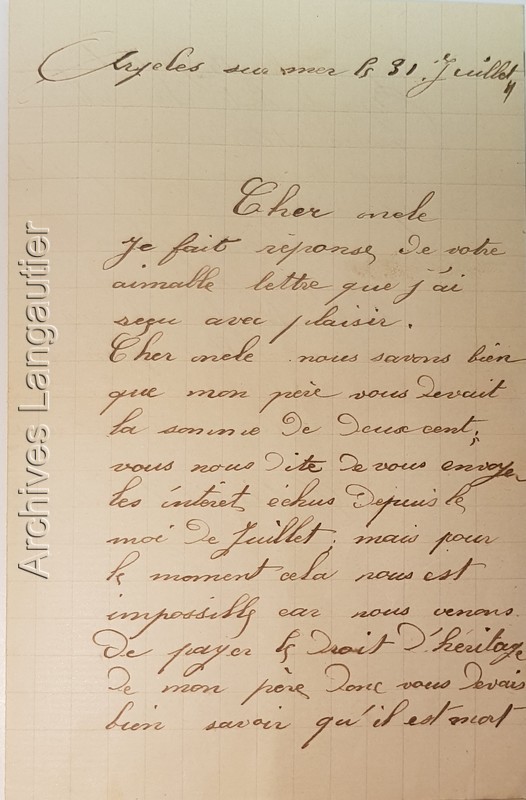 Argeles sur mer le 31 Juillet
Cher oncle
Je fait réponse de votre
aimable lettre que j'ai
reçu avec plaisir.
Cher oncle nous savons bien
que mon père vous devait
la somme de deux cent;
vous nous dite de vous envoyer
les intéret échus depuis le
moi de Juillet; mais pour
le moment cela nous est
impossible car nous venons
de payer le droit d'héritage
de mon père donc vous devais
bien savoir qu'il est mort
Archives Langautier